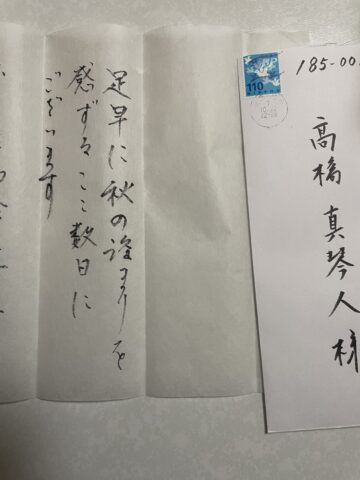 185-00
高橋真琴人様
110
足早に秋の深まりを
感ずるここ数日に
ございます